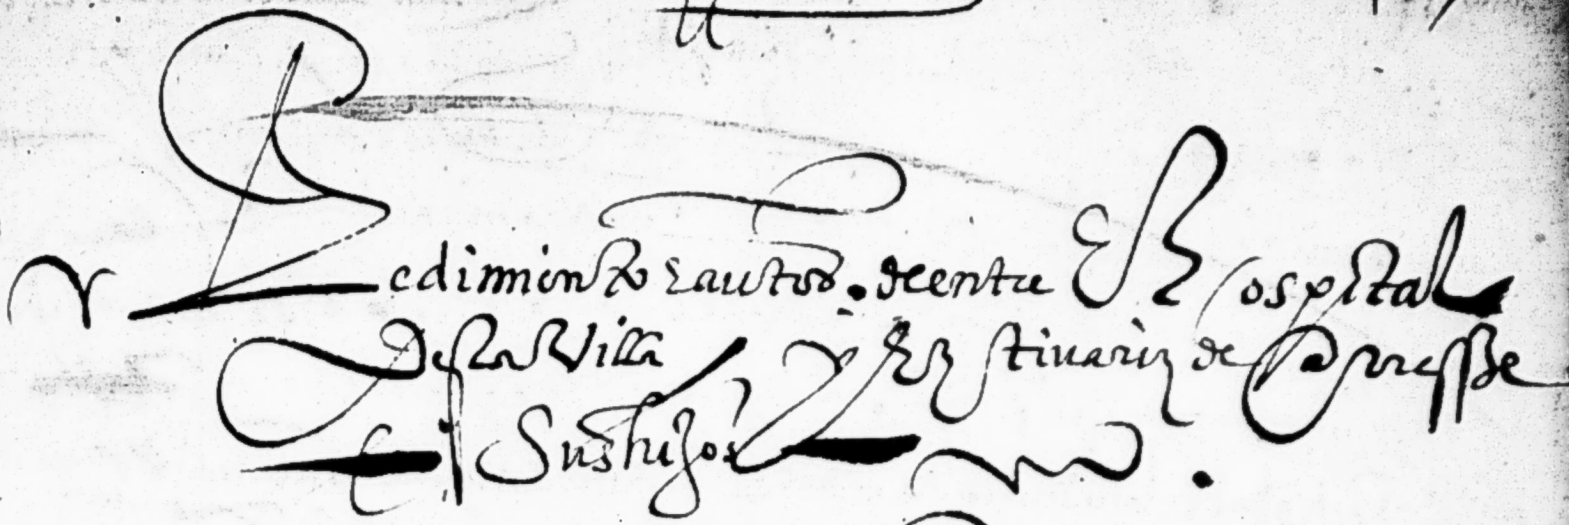 Pedimiento y autos de entre El ospital
Desta Villa Y Estivariz de
E Sus hijos